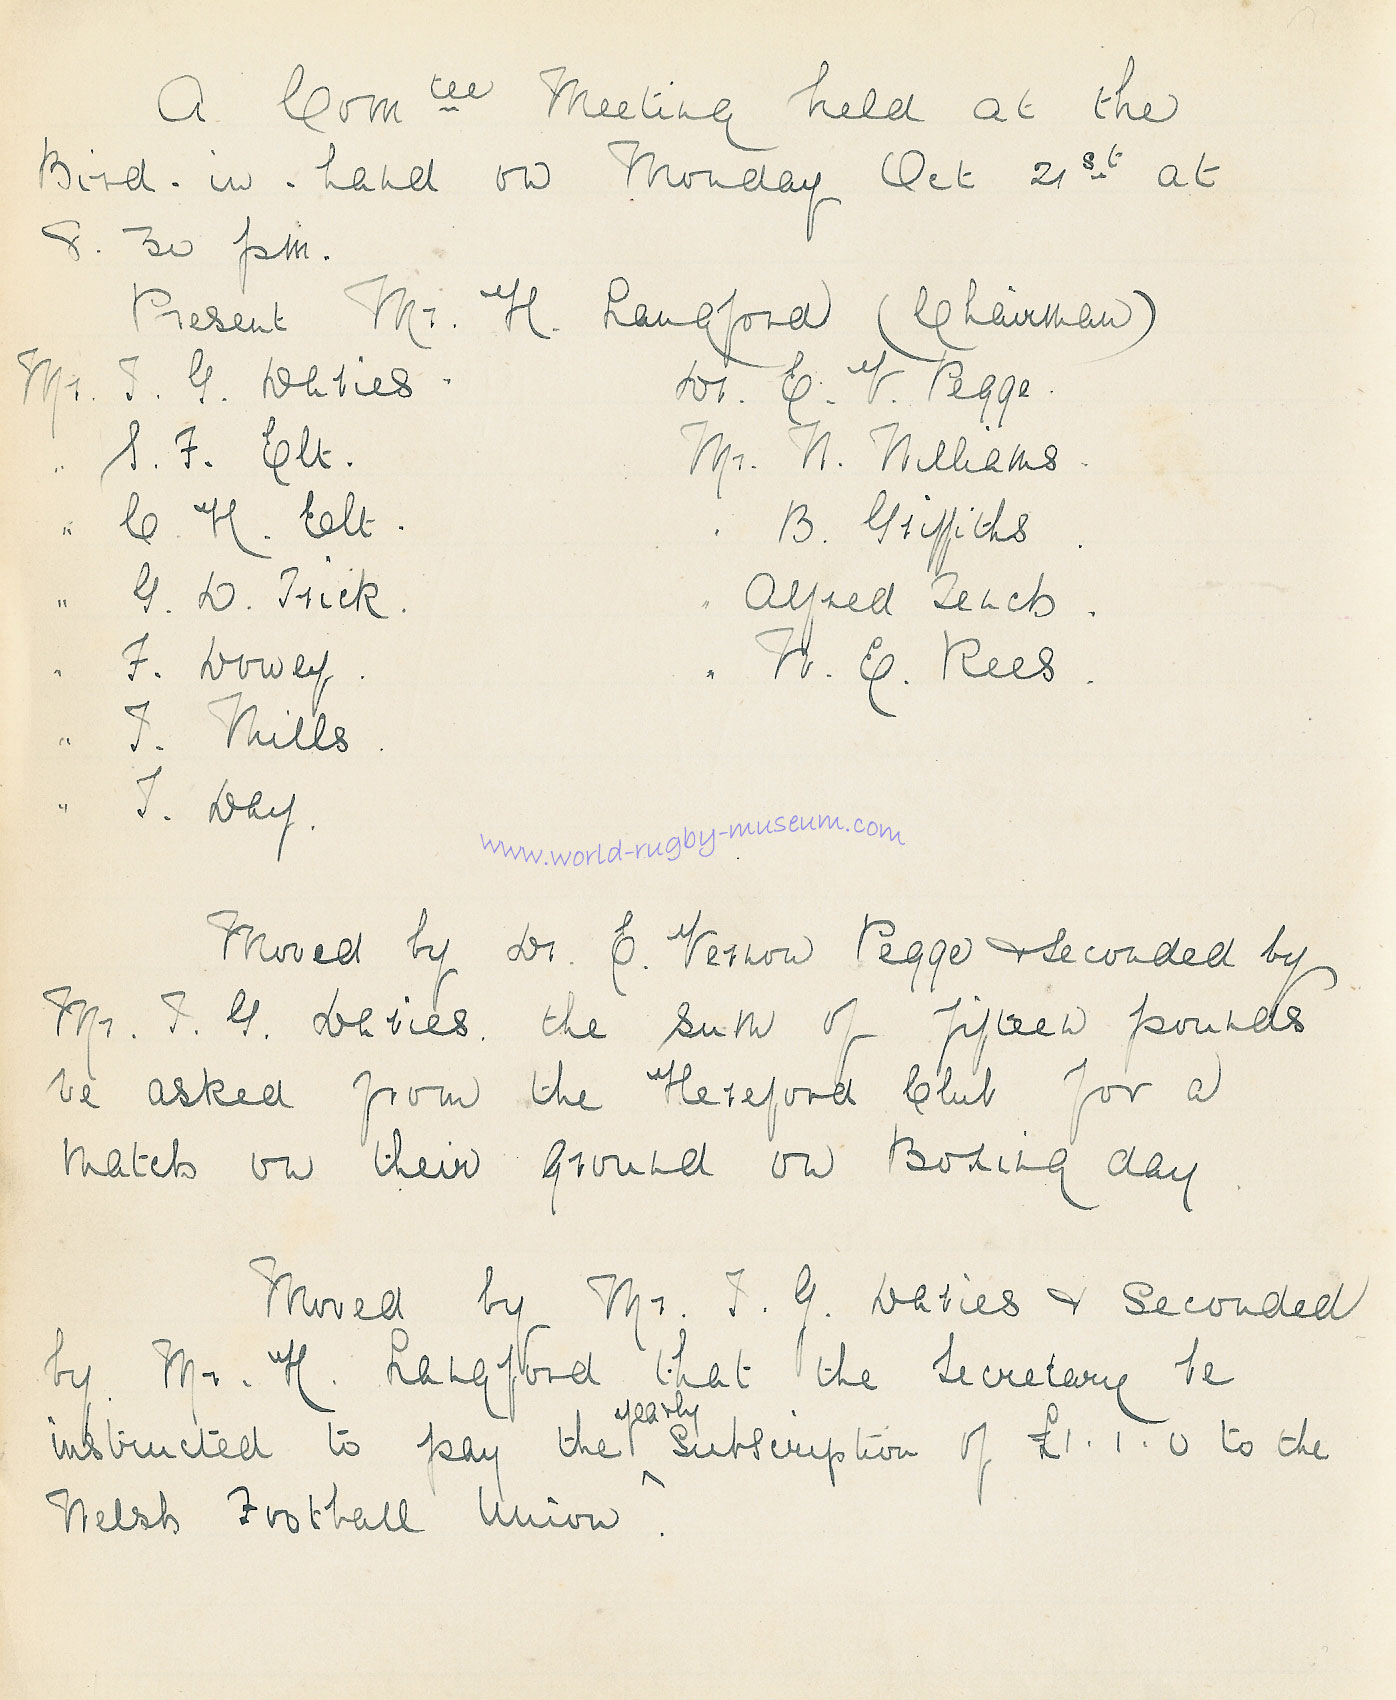 A Com tee Meeting held at the
Bird-in-hand on Monday Oct 21st at
8.30 pm.
Present Mr. H. Langford (Chairman)
Mr. T. G. Davies. Dr. E. V. Pegge.
" S. F. Elt. Mr. W. Williams.
" C H. Elt. " B. Griffiths.
" G. D. Trick. " Alfred Tench.
" F. Dowey. " W. E. Rees.
" T. Mills.
" T. Day.
www.world-rugby-museum.com
Moved by Dr. E. Vernon Pegge & Seconded by
Mr. T. G. Davies. the sum of fifteen pounds
be asked from the Hereford Club for a
match on their ground on Boxing day.
Moved by Mr. T. G. Davies & Seconded
by Mr. H. Langford that the Secretary be
instructed to pay the yearly Subscription of £1.1.0 to the
Welsh Football Union.